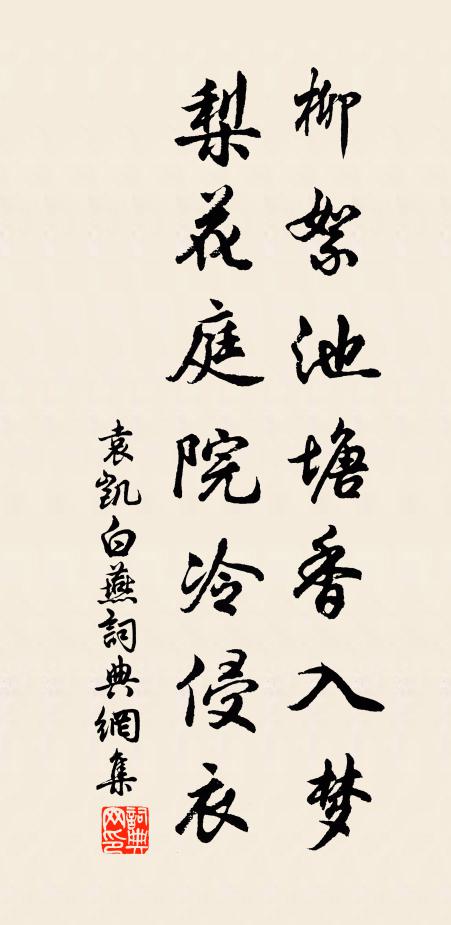 柳絮池塘香入梦
梨花庭院冷侵衣
袁凯白燕詞典網集
詞典網印